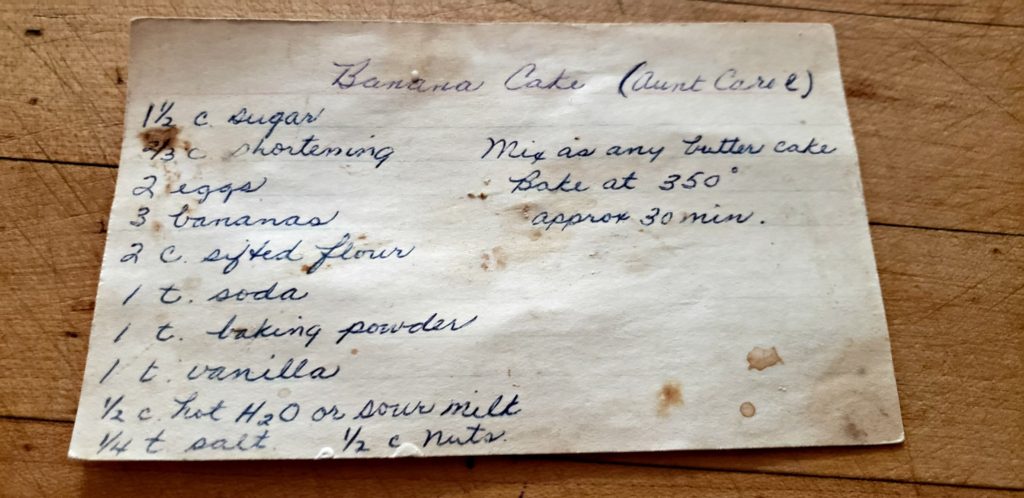 Banana Cake (Aunt Carol)
1 1/2 c. sugar
2/3 c shortening
2 eggs
3 bananas
2 c. sifted flour
1 t. soda
1 t. baking powder
1 t. vanilla
1/2 c. hot H2O or sour milk
1/4 t salt. 1/2 c nuts.
Mix as any butter cake
Bake at 350°
approx 30 min.